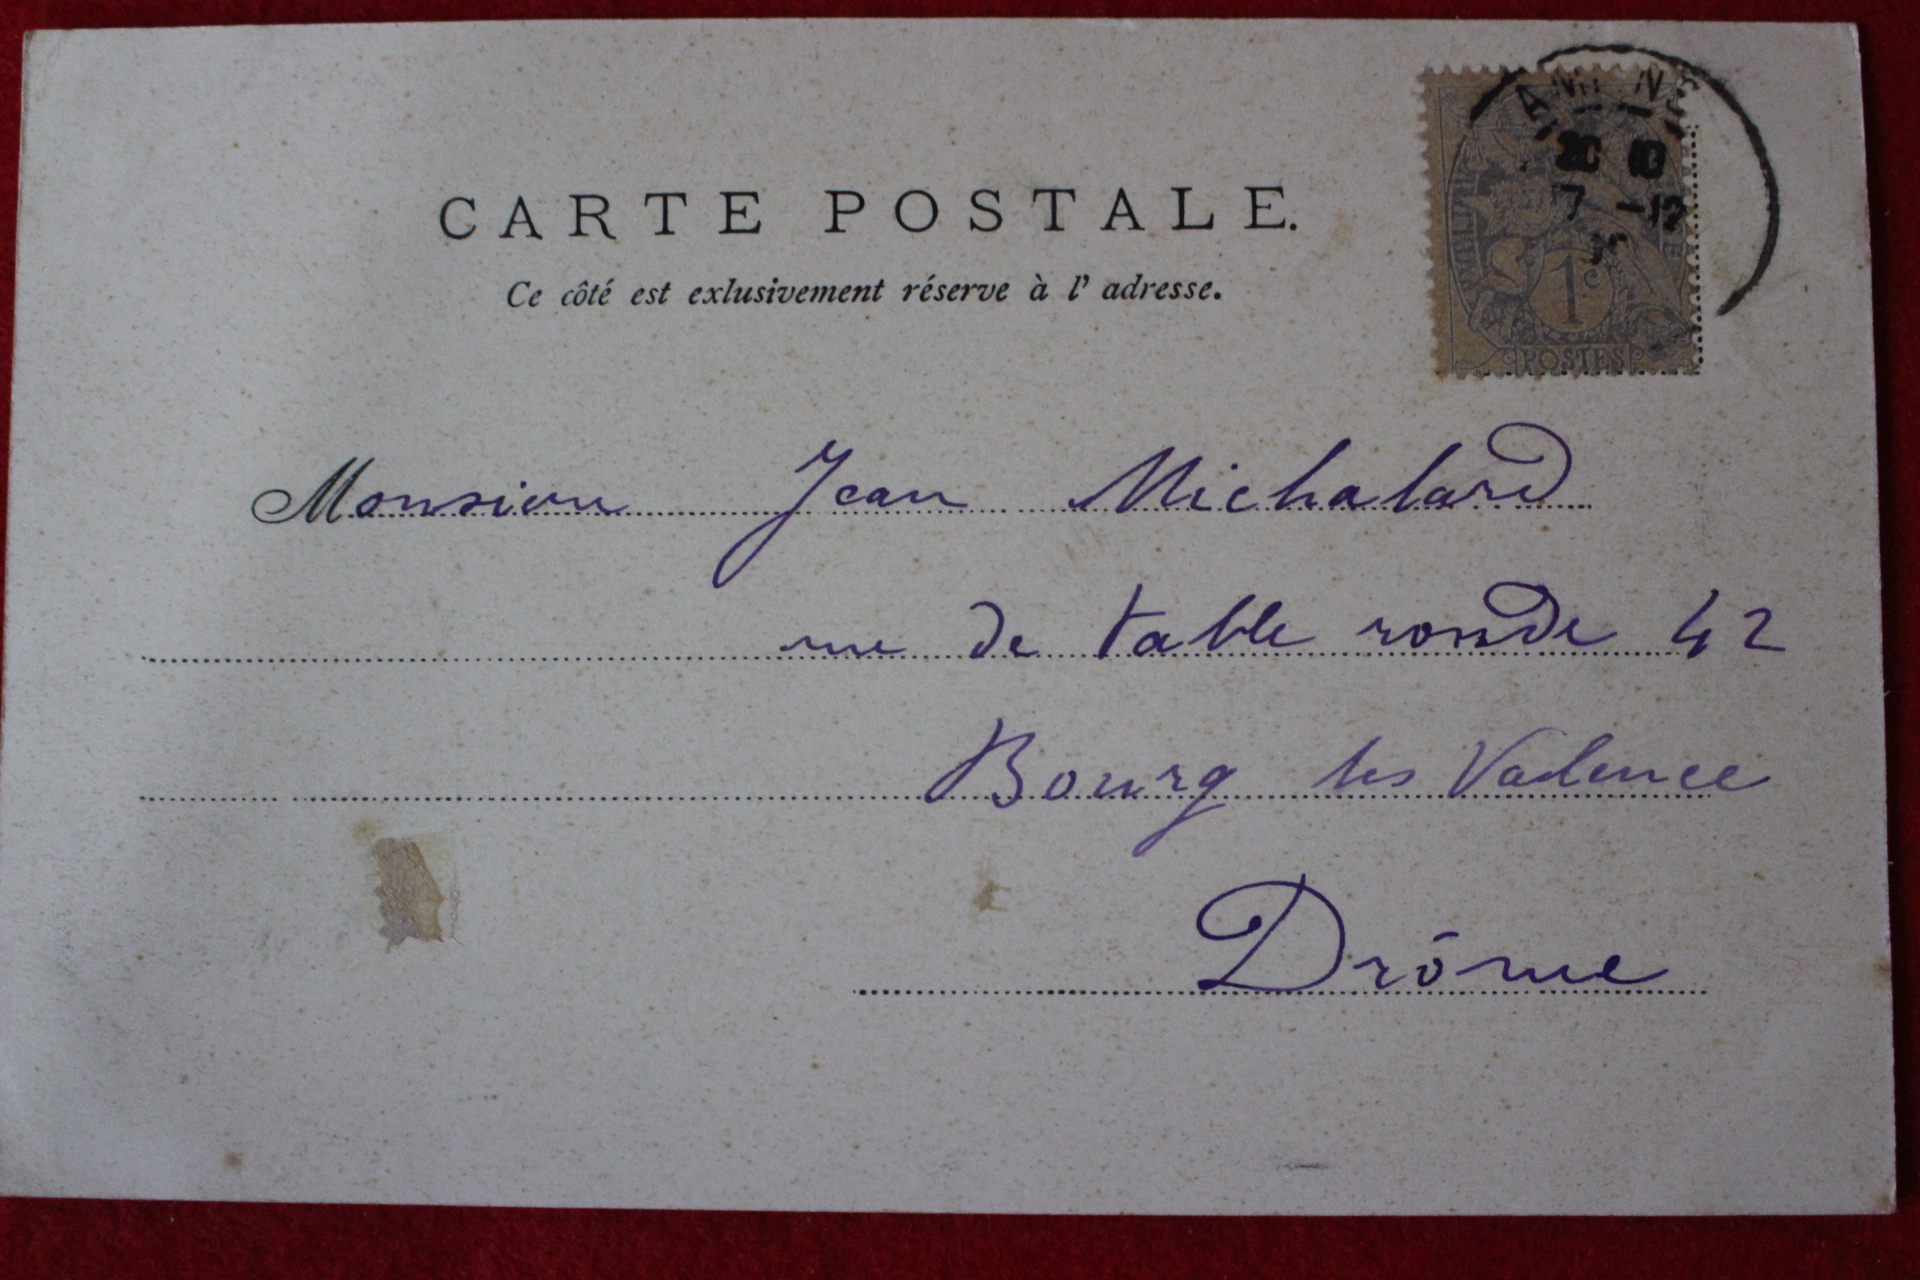 CARTE POSTALE.
Ce côté est exlusivement réserve à l' adresse.
1c
POSTES
Monsieur Jean Michalard
rue de table ronde 42
Bourg les Valence
Drôme